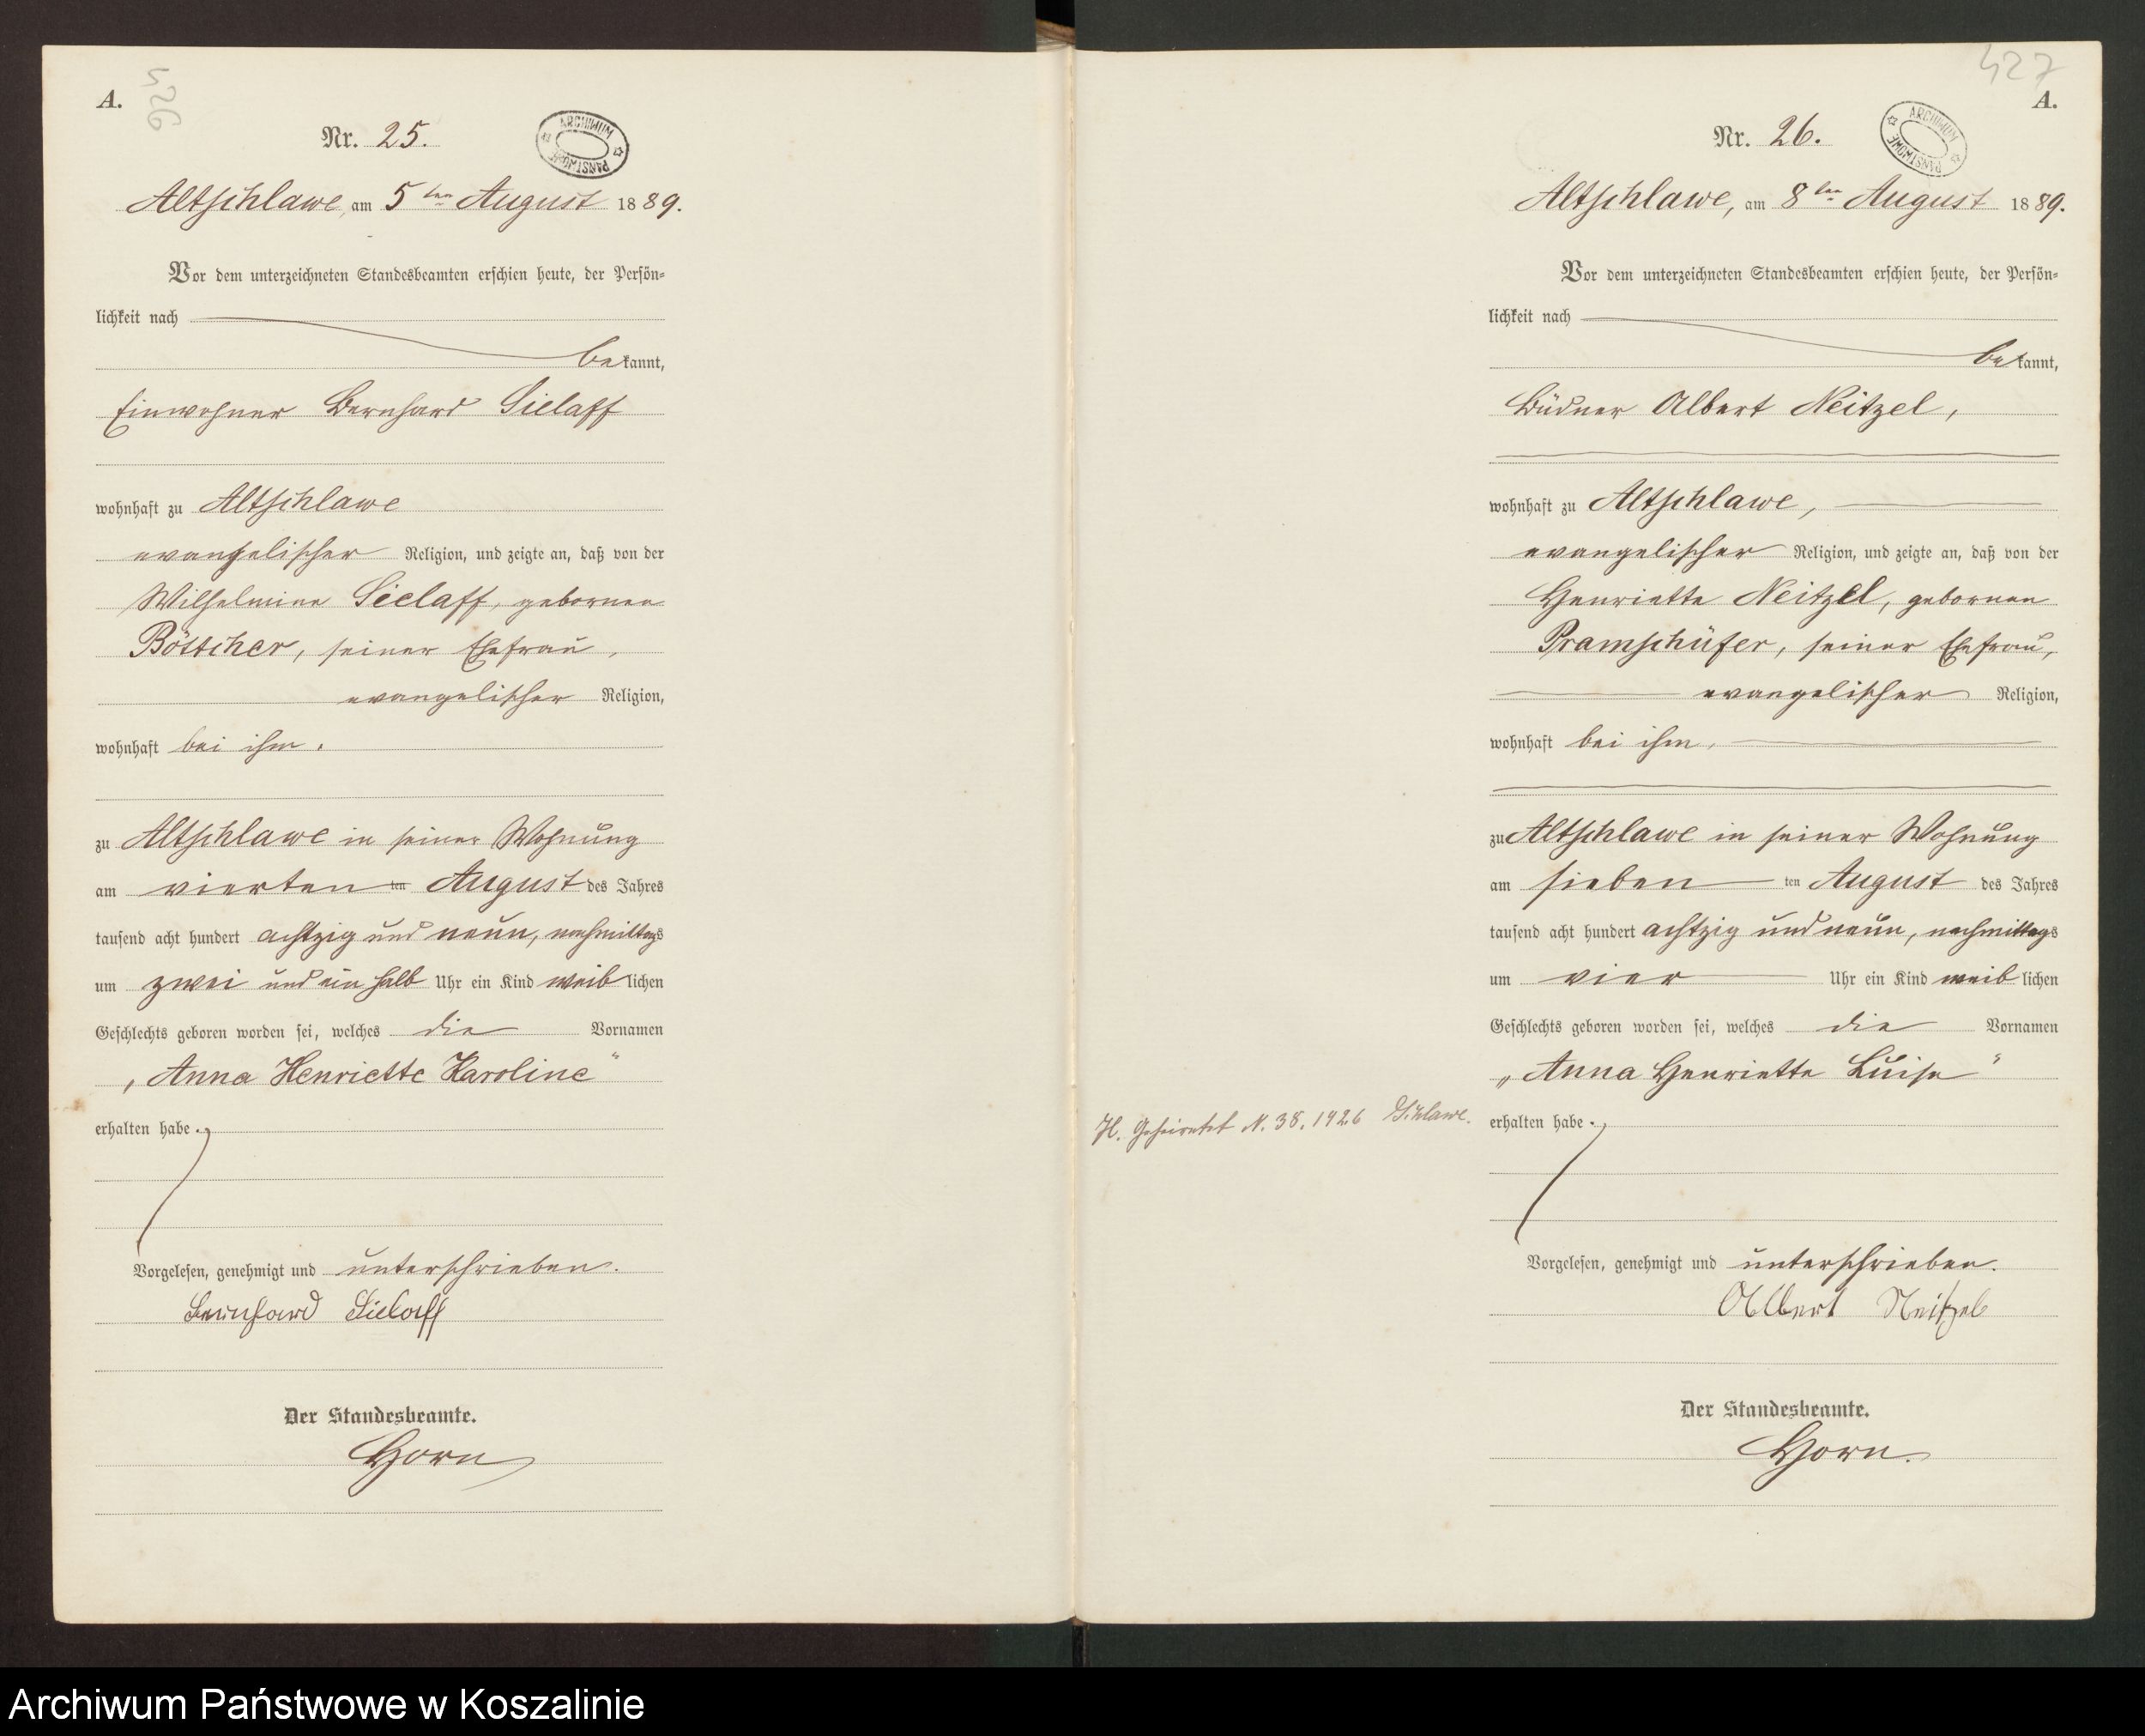 A.
426
Nr. 25.
ARCHIWUM PAŃSTWOWE
Altschlawe, am 5ten August 1889.
Vor dem unterzeichneten Standesbeamten erschien heute, der Persön=
lichkeit nach
bekannt,
Einwohner Bernhard Sielaff
wohnhaft zu Altschlawe
evangelischer Religion, und zeigte an, daß von der
Wilhelmine Sielaff, gebornen
Böttcher, seiner Ehefrau,
evangelischer Religion,
wohnhaft bei ihm,
zu Altschlawe in seiner Wohnung
am vierten ten August des Jahres
tausend acht hundert achtzig und neun, nachmittags
um zwei und ein halb Uhr ein Kind weiblichen
Geschlechts geboren worden sei, welches die Vornamen
„Anna Henriette Karoline“
erhalten habe.
Vorgelesen, genehmigt und unterschrieben.
Bernhard Sielaff
Der Standesbeamte.
Horn
427
A.
Nr. 26.
ARCHIWUM PAŃSTWOWE
Altschlawe, am 8ten August 1889.
Vor dem unterzeichneten Standesbeamten erschien heute, der Persön=
lichkeit nach
bekannt,
Büdner Albert Neitzel,
wohnhaft zu Altschlawe,
evangelischer Religion, und zeigte an, daß von der
Henriette Neitzel, gebornen
Pramschüfer, seiner Ehefrau,
evangelischer Religion,
wohnhaft bei ihm,
zu Altschlawe in seiner Wohnung
am sieben ten August des Jahres
tausend acht hundert achtzig und neun, nachmittags
um vier Uhr ein Kind weiblichen
Geschlechts geboren worden sei, welches die Vornamen
„Anna Henriette Luise“
H. Geheiratet N. 38. 1926 Schlawe.
erhalten habe.
Vorgelesen, genehmigt und unterschrieben.
Albert Neitzel
Der Standesbeamte.
Horn.
Archiwum Państwowe w Koszalinie